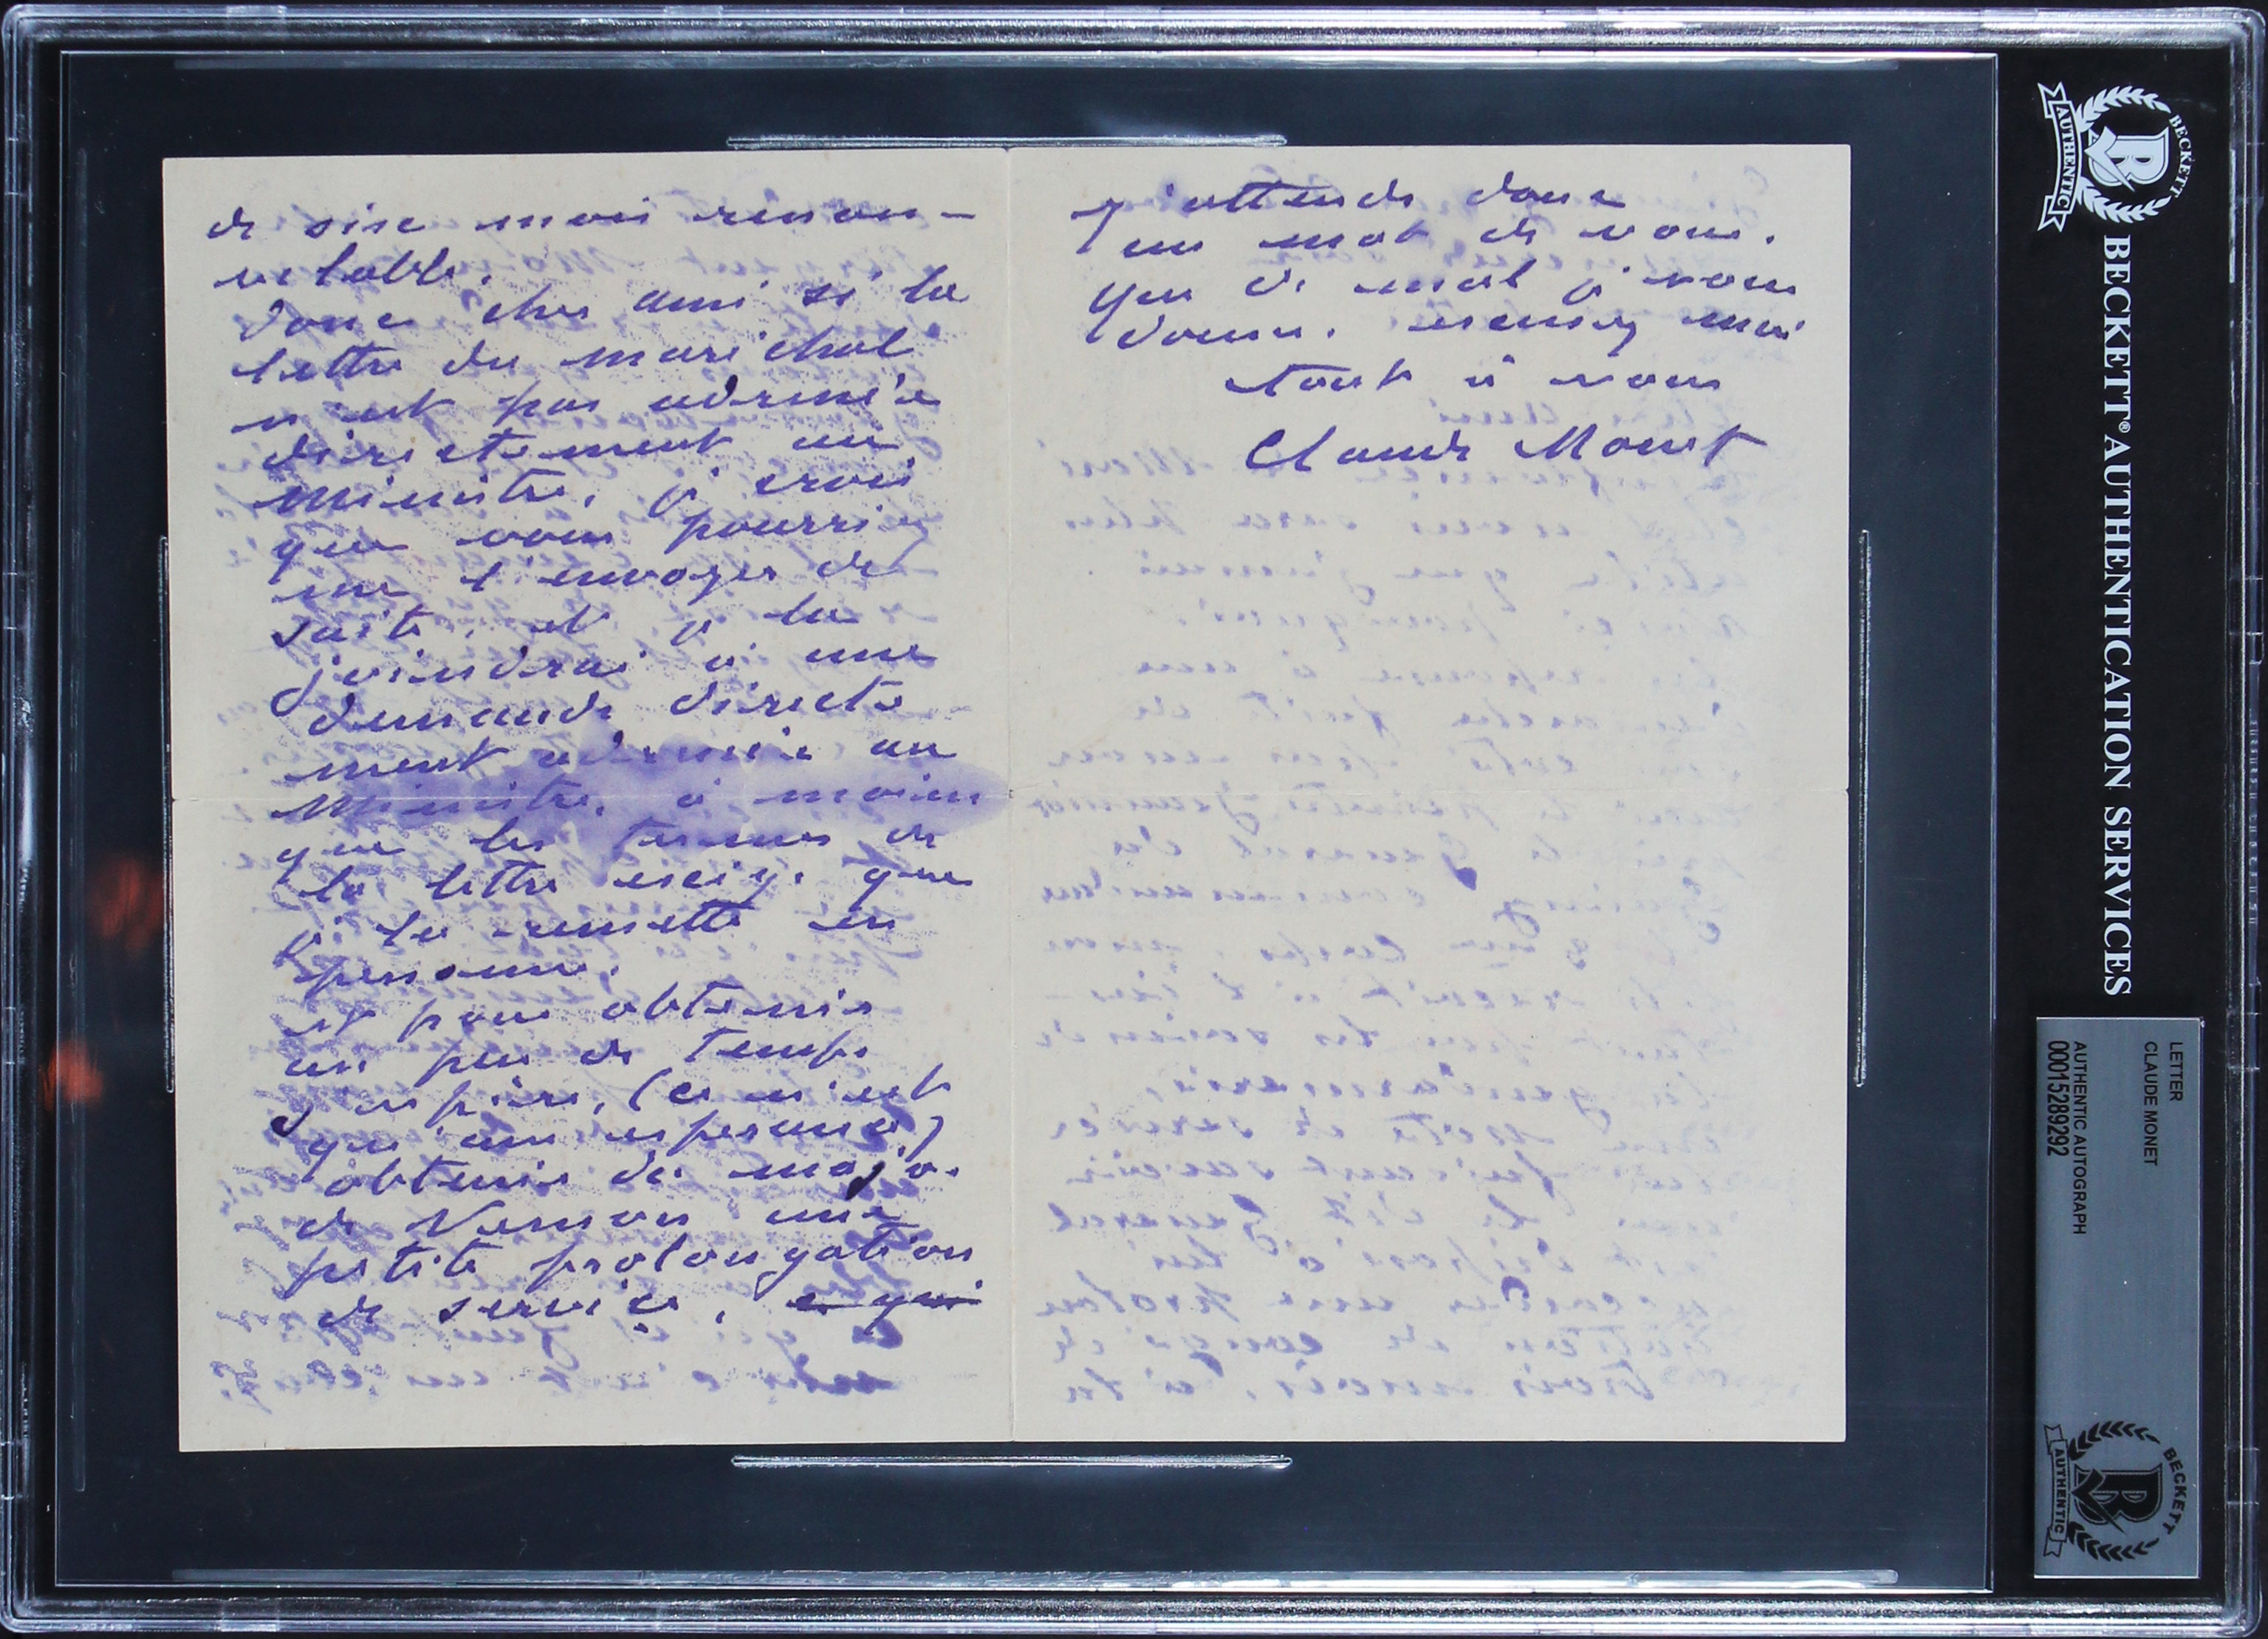 de six mois renou-
velable.
donc cher ami si la
lettre du maréchal
n'est pas adressée
directement au
Ministre, je crois
que vous pourriez
me l'envoyer de
suite, et je la
joindrai à une
demande directe
ment adressée au
Ministre, à moins
que les termes de
la lettre exige que
je la remette en
personne.
et pour obtenir
un peu de temps
j'espère, (ce n'est
qu'une esperance)
obtenir du major
de Vernon une
petite prolongation
de service, ce qui
J'attends donc
un mot de vous.
que de mal je vous
donne. excusez moi
tout à vous
Claude Monet
BECKETT
AUTHENTIC
BECKETT® AUTHENTICATION SERVICES
LETTER
CLAUDE MONET
AUTHENTIC AUTOGRAPH
00015289292
BECKETT
AUTHENTIC